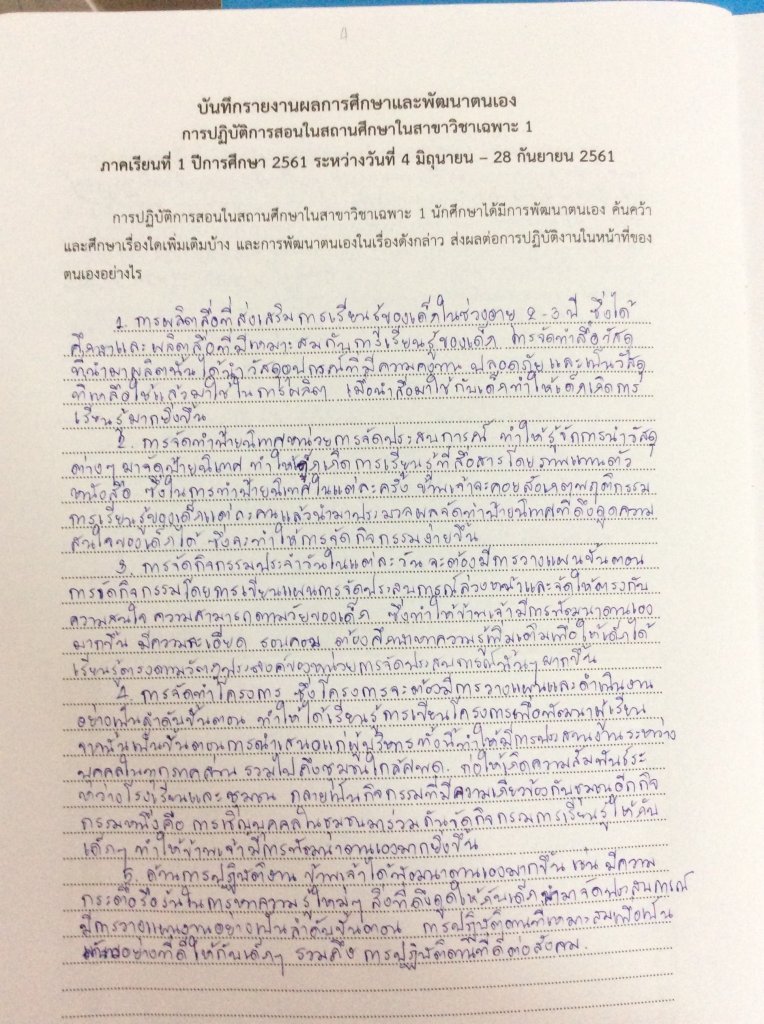 บันทึกรายงานผลการศึกษาและพัฒนาตนเอง
การปฏิบัติการสอนในสถานศึกษาในสาขาวิชาเฉพาะ 1
ภาคเรียนที่ 1 ปีการศึกษา 2561 ระหว่างวันที่ 4 มิถุนายน – 28 กันยายน 2561
การปฏิบัติการสอนในสถานศึกษาในสาขาวิชาเฉพาะ 1 นักศึกษาได้มีการพัฒนาตนเอง ค้นคว้า
และศึกษาเรื่องใดเพิ่มเติมบ้าง และการพัฒนาตนเองในเรื่องดังกล่าว ส่งผลต่อการปฏิบัติงานในหน้าที่ของ
ตนเองอย่างไร
1. การผลิตสื่อที่ส่งเสริมการเรียนรู้ของเด็กในช่วงอายุ 2-3 ปี ซึ่งได้
ศึกษาและผลิตสื่อที่มีเหมาะสมกับการเรียนรู้ของเด็ก การจัดทำสื่อวัสดุ
ที่นำมาผลิตนั้นได้นำวัสดุอุปกรณ์ที่มีความคงทน ปลอดภัย และเป็นวัสดุ
ที่เหลือใช้แล้วมาใช้ในการผลิต เมื่อนำสื่อมาใช้กับเด็กทำให้เด็กเกิดการ
เรียนรู้มากยิ่งขึ้น
2. การจัดทำป้ายนิเทศหน่วยการจัดประสบการณ์ ทำให้รู้จักการนำวัสดุ
ต่างๆ มาจัดป้ายนิเทศ ทำให้เด็กเกิดการเรียนรู้ที่สื่อสารโดยภาพแทนตัว
หนังสือ ซึ่งในการทำป้ายนิเทศในแต่ละครั้ง ข้าพเจ้าจะคอยสังเกตพฤติกรรม
การเรียนรู้ของเด็กแต่ละคนแล้วนำมาประมวลผลจัดทำป้ายนิเทศที่ดึงดูดความ
สนใจของเด็กได้ ซึ่งจะทำให้การจัดกิจกรรมง่ายขึ้น
3. การจัดกิจกรรมประจำวันในแต่ละวัน จะต้องมีการวางแผนขั้นตอน
การจัดกิจกรรมโดยการเขียนแผนการจัดประสบการณ์ล่วงหน้าและจัดให้ตรงกับ
ความสนใจ ความสามารถตามวัยของเด็ก ซึ่งทำให้ข้าพเจ้ามีการพัฒนาตนเอง
มากขึ้น มีความละเอียด รอบคอบ ต้องศึกษาหาความรู้เพิ่มเติมเพื่อให้เด็กได้
เรียนรู้ตรงตามวัตถุประสงค์ของหน่วยการจัดประสบการณ์นั้นๆ มากขึ้น
4. การจัดทำโครงการ ซึ่งโครงการจะต้องมีการวางแผนและดำเนินงาน
อย่างเป็นลำดับขั้นตอน ทำให้ได้เรียนรู้การเขียนโครงการเพื่อพัฒนาผู้เรียน
จากนั้นเป็นขั้นตอนการนำเสนอแก่ผู้บริหาร ทั้งนี้ทำให้มีการประสานงานระหว่าง
บุคคลในทุกภาคส่วน รวมไปถึงชุมชนใกล้ศพด. ก่อให้เกิดความสัมพันธ์ระ
หว่างโรงเรียนและชุมชน กลายเป็นกิจกรรมที่มีความเกี่ยวข้องกับชุมชนอีกกิจ
กรรมหนึ่งคือ การเชิญบุคคลในชุมชนมาร่วมกันจัดกิจกรรมการเรียนรู้ให้กับ
เด็กๆ ทำให้ข้าพเจ้ามีการพัฒนาตนเองมากยิ่งขึ้น
5. ด้านการปฏิบัติงาน ข้าพเจ้าได้พัฒนาตนเองมากขึ้น เช่น มีความ
กระตือรือร้นในการหาความรู้ใหม่ๆ สิ่งที่ดึงดูดให้กับเด็กนำมาจัดประสบการณ์
มีการวางแผนงานอย่างเป็นลำดับขั้นตอน การปฏิบัติตนที่เหมาะสมเพื่อเป็น
แบบอย่างที่ดีให้กับเด็กๆ รวมถึง การปฏิบัติตนที่ดีต่อสังคม.